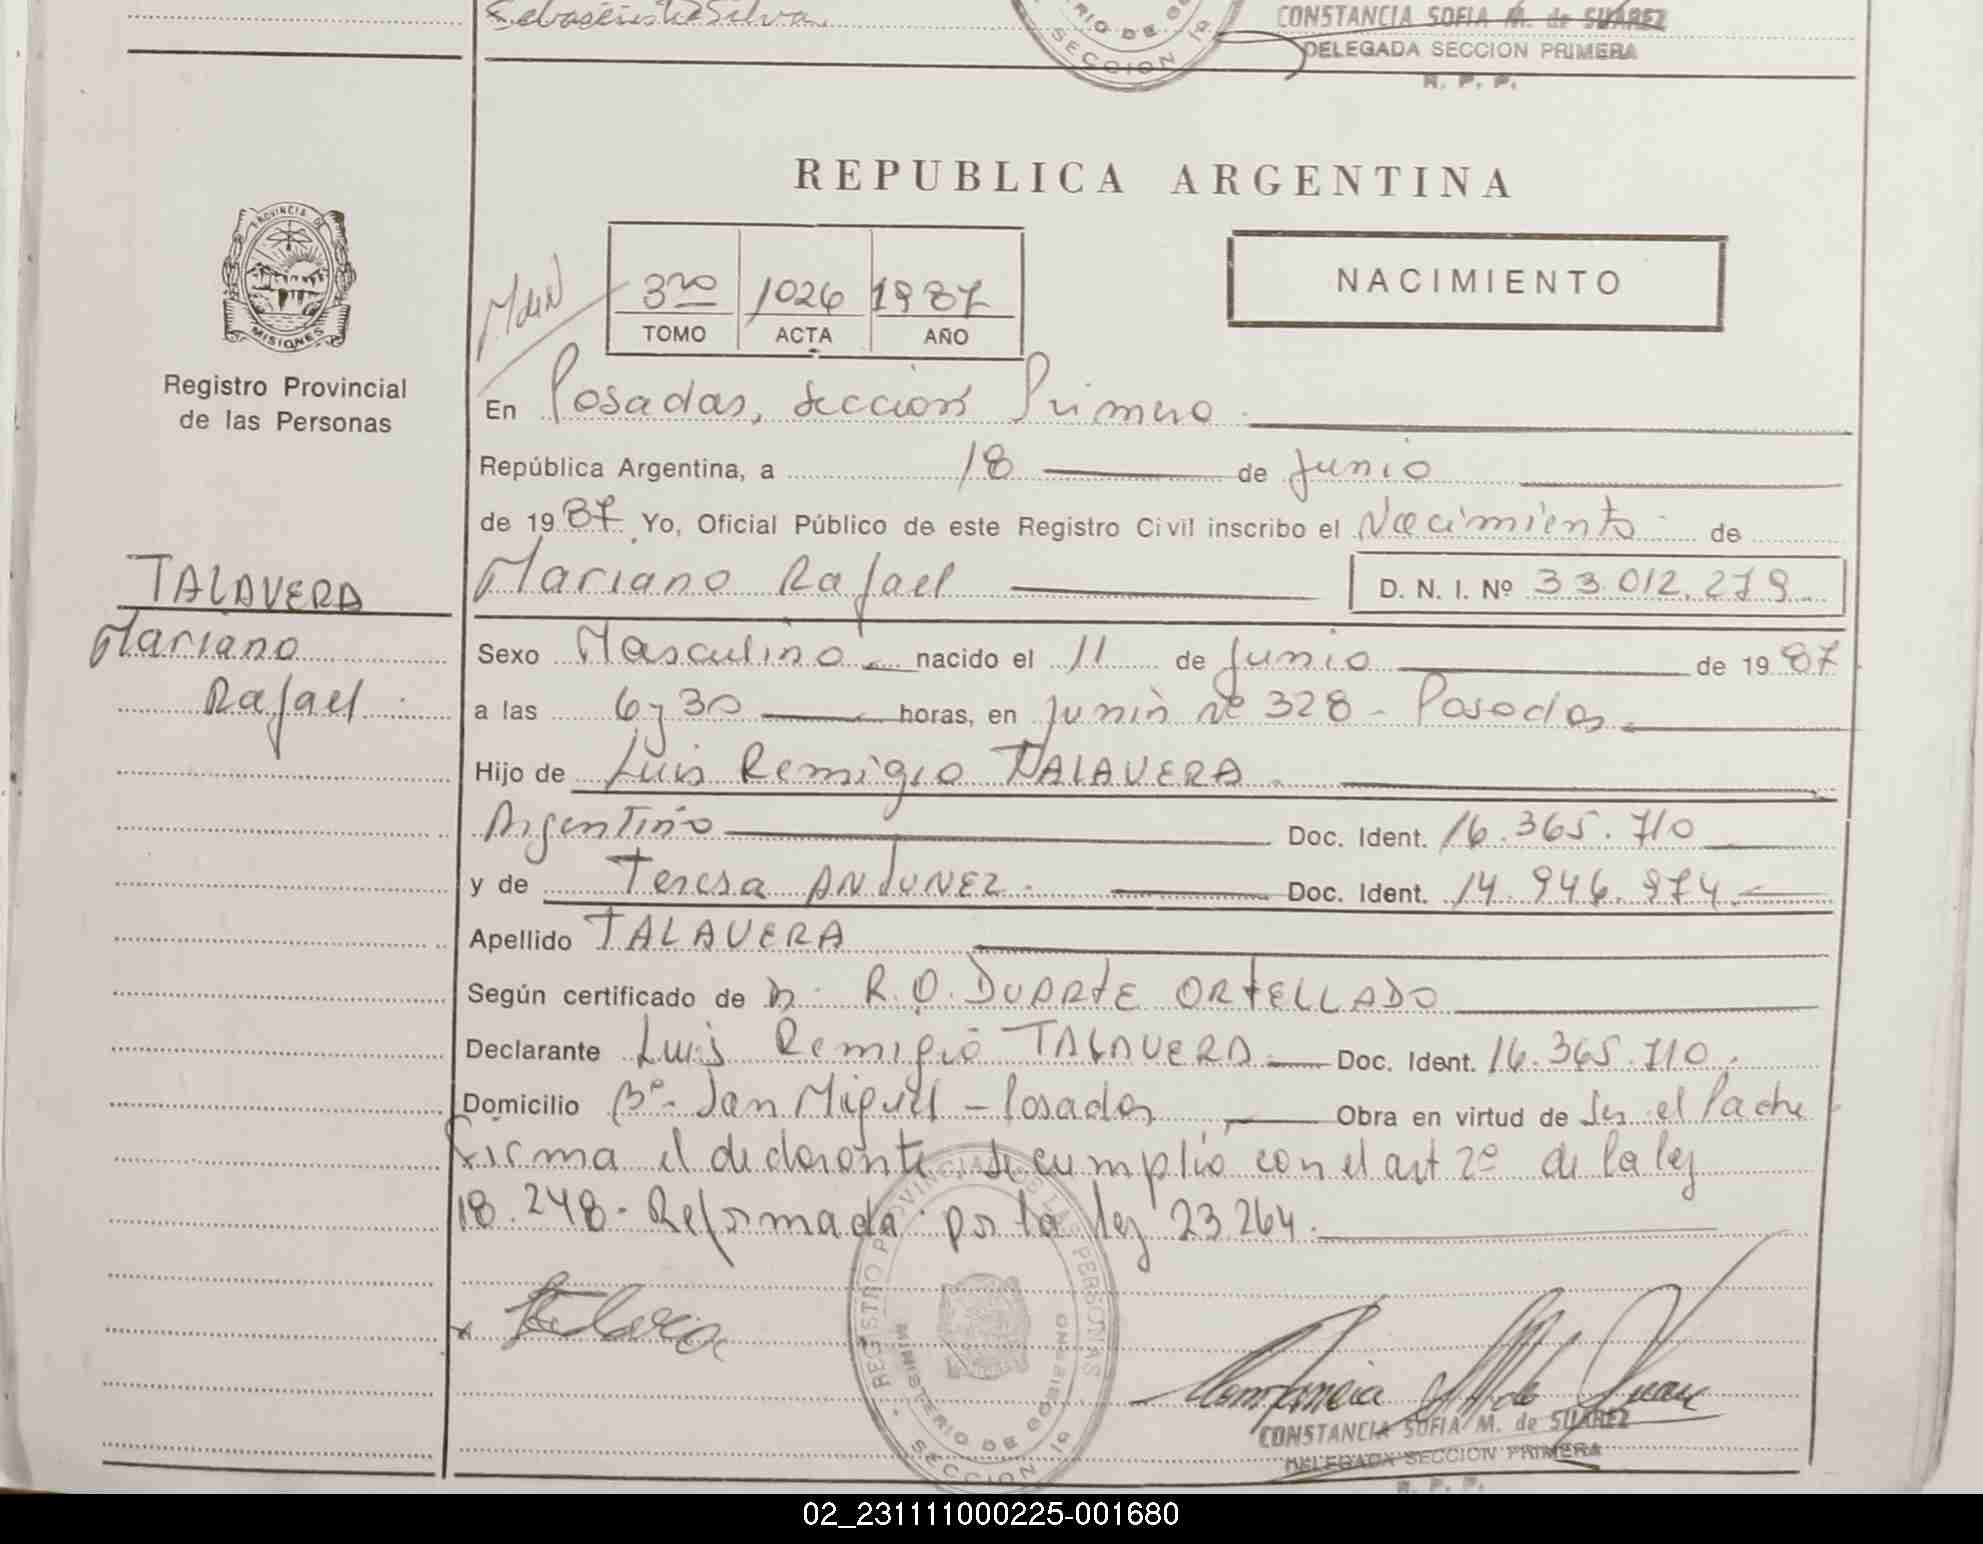 CONSTANCIA SOFIA M. de SUAREZ
DELEGADA SECCION PRIMERA
R. P. P.
SECCION 1ª
REPUBLICA ARGENTINA
PROVINCIA DE
MISIONES
Registro Provincial
de las Personas
3ro 1026 1987
TOMO ACTA AÑO
NACIMIENTO
En Posadas, Sección Primera
República Argentina, a 18 de Junio
de 1987 Yo, Oficial Público de este Registro Civil inscribo el Nacimiento de
TALAVERA
Mariano
Rafael
Mariano Rafael D. N. I. Nº 33.012.279
Sexo Masculino nacido el 11 de Junio de 1987
a las 6 y 30 horas, en Junin Nº 328 - Posadas
Hijo de Luis Remigio TALAVERA
Argentino Doc. Ident. 16.365.710
y de Teresa ANTUNEZ Doc. Ident. 14.946.974
Apellido TALAVERA
Según certificado de Dr. R.O. DUARTE ORTELLADO
Declarante Luis Remigio TALAVERA Doc. Ident. 16.365.710
Domicilio Bº San Miguel - Posadas Obra en virtud de Ser el Padre
Firma el declarante se cumplió con el art 2º de la ley
18.248 - Reformada por la ley 23.264.
REGISTRO PROVINCIAL DE LAS PERSONAS
MINISTERIO DE GOBIERNO
SECCION 1ª
CONSTANCIA SOFIA M. de SUAREZ
DELEGADA SECCION PRIMERA
R. P. P.
02_231111000225-001680